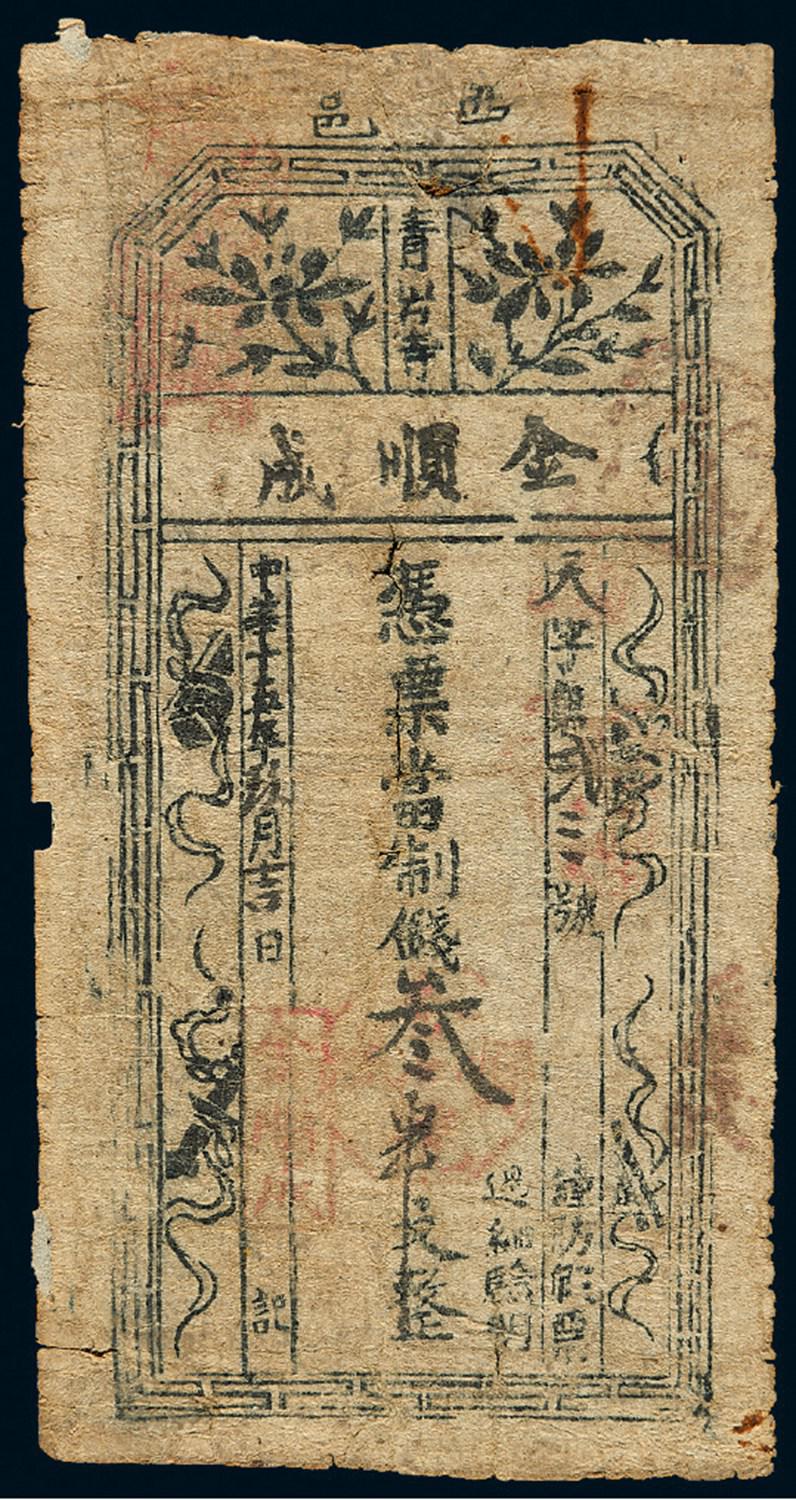 邑
青山寺
金順成
天字第弍三號
謹防假票
過細驗明
憑票當制錢叁串文整
中華十五年玖月吉日
記